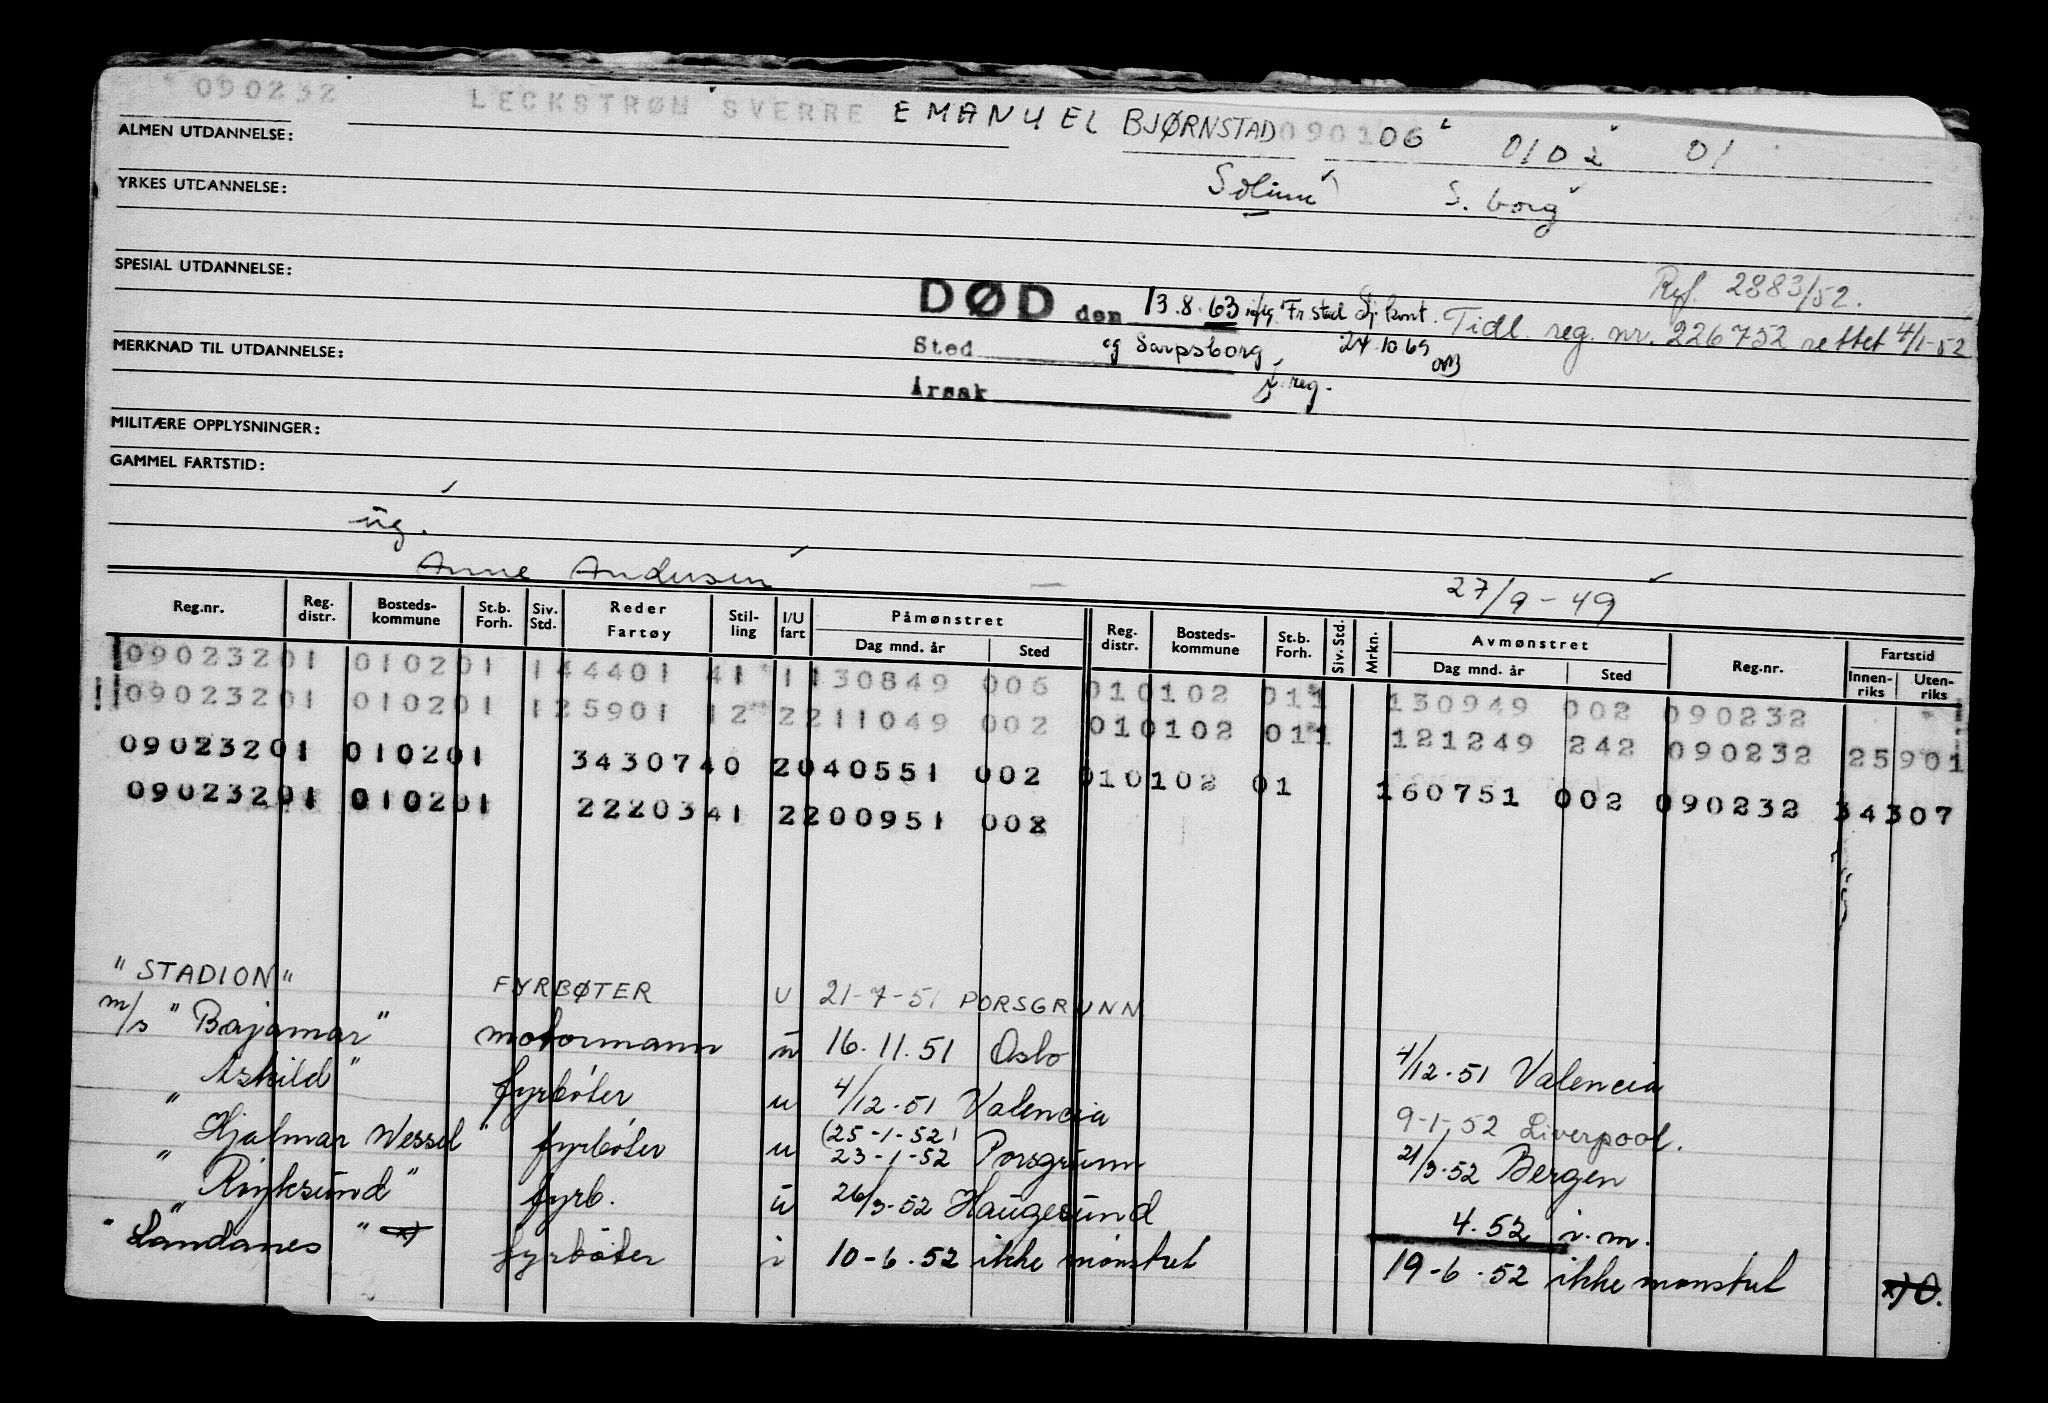 090232 LECKSTRØM SVERRE EMANUEL BJØRNSTAD 090106 0102 01
ALMEN UTDANNELSE:
S. borg
YRKES UTDANNELSE:
SPESIAL UTDANNELSE:
Ref. 2883/52.
DØD den 13.8.63 iflg. Fr.stad Sj. kont. Tidl. reg. nr. 226752 rettet 4/1-52
Sted og Sarpsborg 24.10 69
MERKNAD TIL UTDANNELSE:
Årsak f.reg.
MILITÆRE OPPLYSNINGER:
GAMMEL FARTSTID:
ug.
Anne Andersen — 27/9-49
Reg.nr. Reg. distr. Bosteds- kommune St.b. Forh. Siv. Std. Reder Fartøy Stil- ling I/U fart Påmønstret Dag mnd. år Sted Reg. distr. Bosteds- kommune St.b. Forh. Siv. Std. Mrkn. Avmønstret Dag mnd. år Sted Reg.nr. Fartstid Innen- riks Uten- riks
09023201 010201 144401 41 1130849 006 010102 011 130949 002 090232
09023201 010201 125901 12 2211049 002 010102 011 121249 242 090232 25901
09023201 010201 3430740 2040551 002 010102 01 160751 002 090232 34307
09023201 010201 2220341 2200951 002
"STADION" FYRBØTER U 21-7-51 PORSGRUNN
m/s "Bajamar" motormann u 16.11.51 Oslo 4/12.51 Valencia
" Askild" fyrbøter u 4/12.51 Valencia 9-1-52 Liverpool.
" Hjalmar Wessel" fyrbøter u (25-1-52) 23-1-52 Porsgrunn 21/3.52 Bergen
" Røyksund" fyrb. u 26/3-52 Haugesund 4.52 i.m.
"Landanes" x) fyrbøter i 10-6.52 ikke mønstret 19-6.52 ikke mønstret x) O.